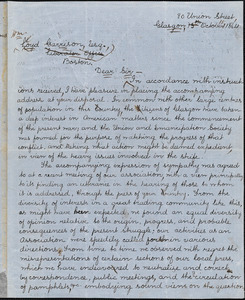 70 Union Street
Glasgow, October 1864.
Lloyd Garrison, Esq.
Liberator Office
Boston.
Dear Sir,
In accordance with instruc
tions received, I have pleasure in placing the accompanying
address at your disposal. In common with other large centres
of population in this Country, the citizens of Glasgow have taken
a deep interest in American matters since the commencement
of the present war, and the Union and Emancipation Society
was formed for the purpose of watching the progress of that
conflict, and taking what action might be deemed expedient
in view of the heavy issues involved in the strife.
The accompanying expression of sympathy was agreed
to at a recent meeting of our association, with a view primarily
to its finding an audience in the hearing of those to whom
it is addressed, through the press of your Country. From the
diversity of interest in a great trading community like this,
as might have been expected, no period an equal diversity
of opinion relative to the origin, progress, and probable
consequences of the present struggle; our activities as an
Association, most specially called forth in various
directions, from time to time, we observed with regret the
misrepresentations of certain sections of our local press,
which we have endeavoured to neutralize and correct
by correspondence, public meetings, and the circulation
of pamphlets, embodying sound views on the question